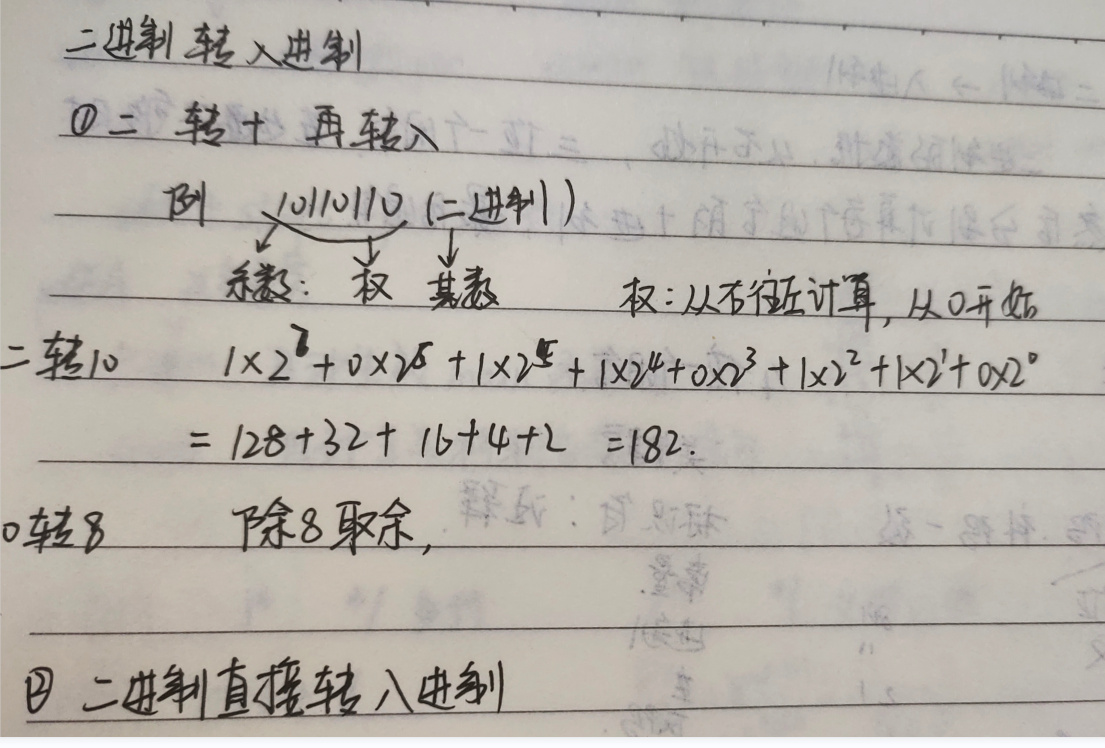 二进制转八进制
①二 转十 再转八
例 10110110 (二进制)
系数: 权 基数 权:从右往左计算,从0开始
二转10 1×2⁷+0×2⁶+1×2⁵+1×2⁴+0×2³+1×2²+1×2¹+0×2⁰
= 128+32+16+4+2 =182.
0转8 下除8取余,
② 二进制直接转八进制